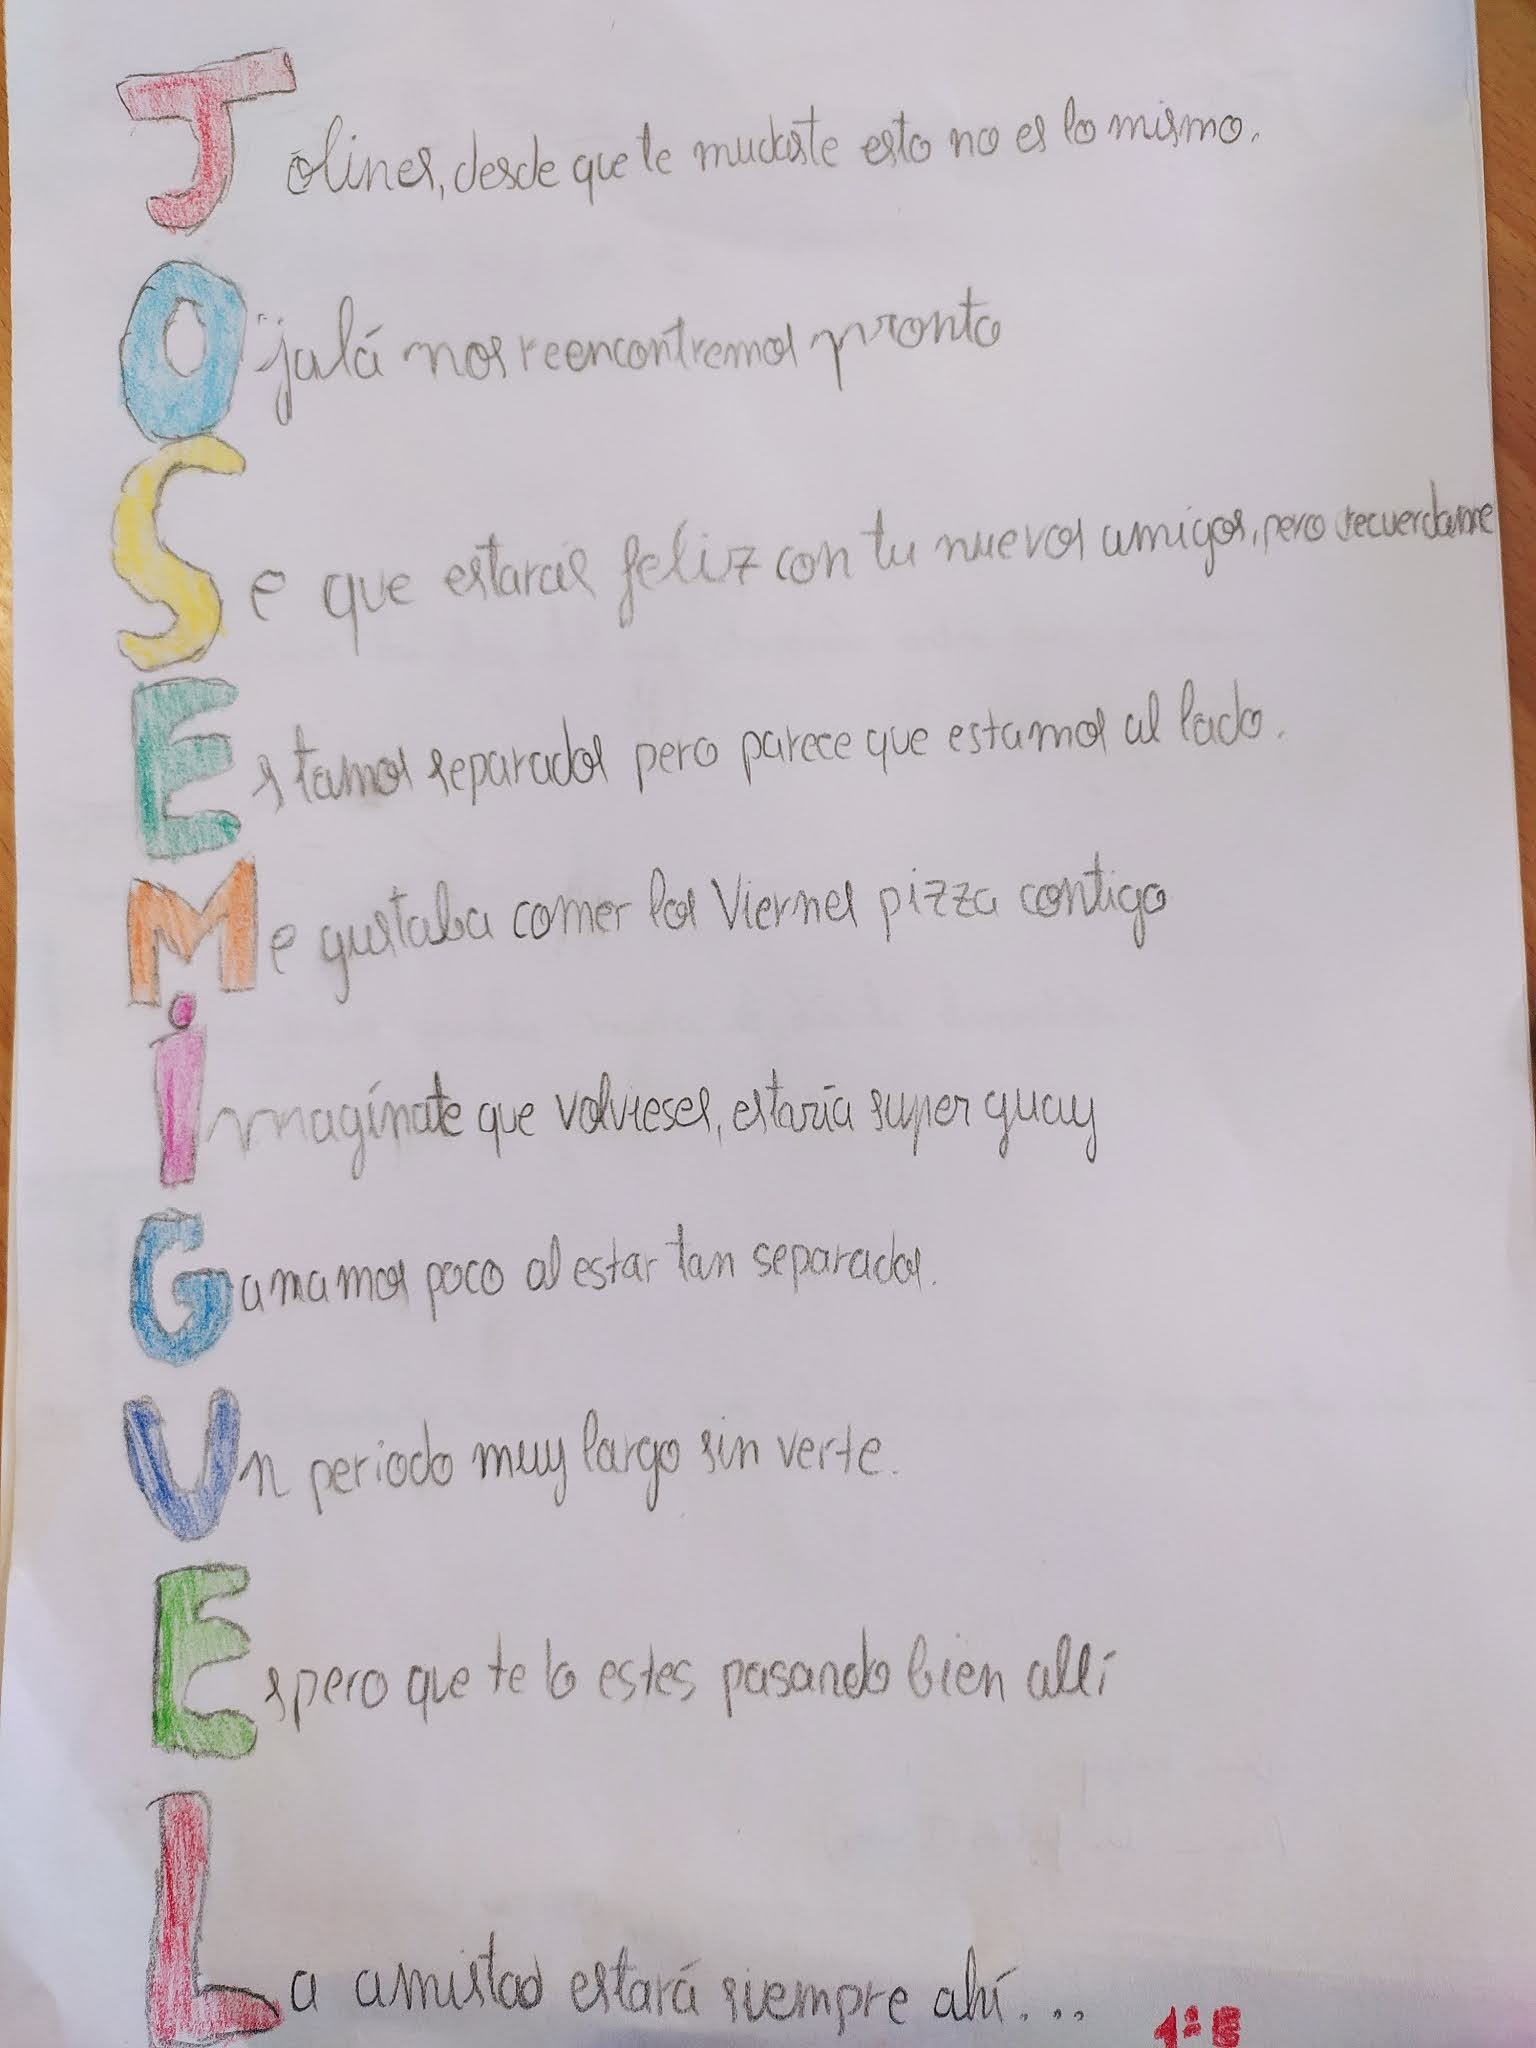 Jólines, desde que te mudaste esto no es lo mismo.
Ojalá nos reencontremos pronto
Se que estarás feliz con tu nuevos amigos, pero recuerdame
Estamos separados pero parece que estamos al lado.
Me gustaba comer los Viernes pizza contigo
Imagínate que volvieses, estaría super guay
Ganamos poco al estar tan separados.
Un periodo muy largo sin verte.
Espero que te lo estes pasando bien allí
La amistad estará siempre ahí...
1º E